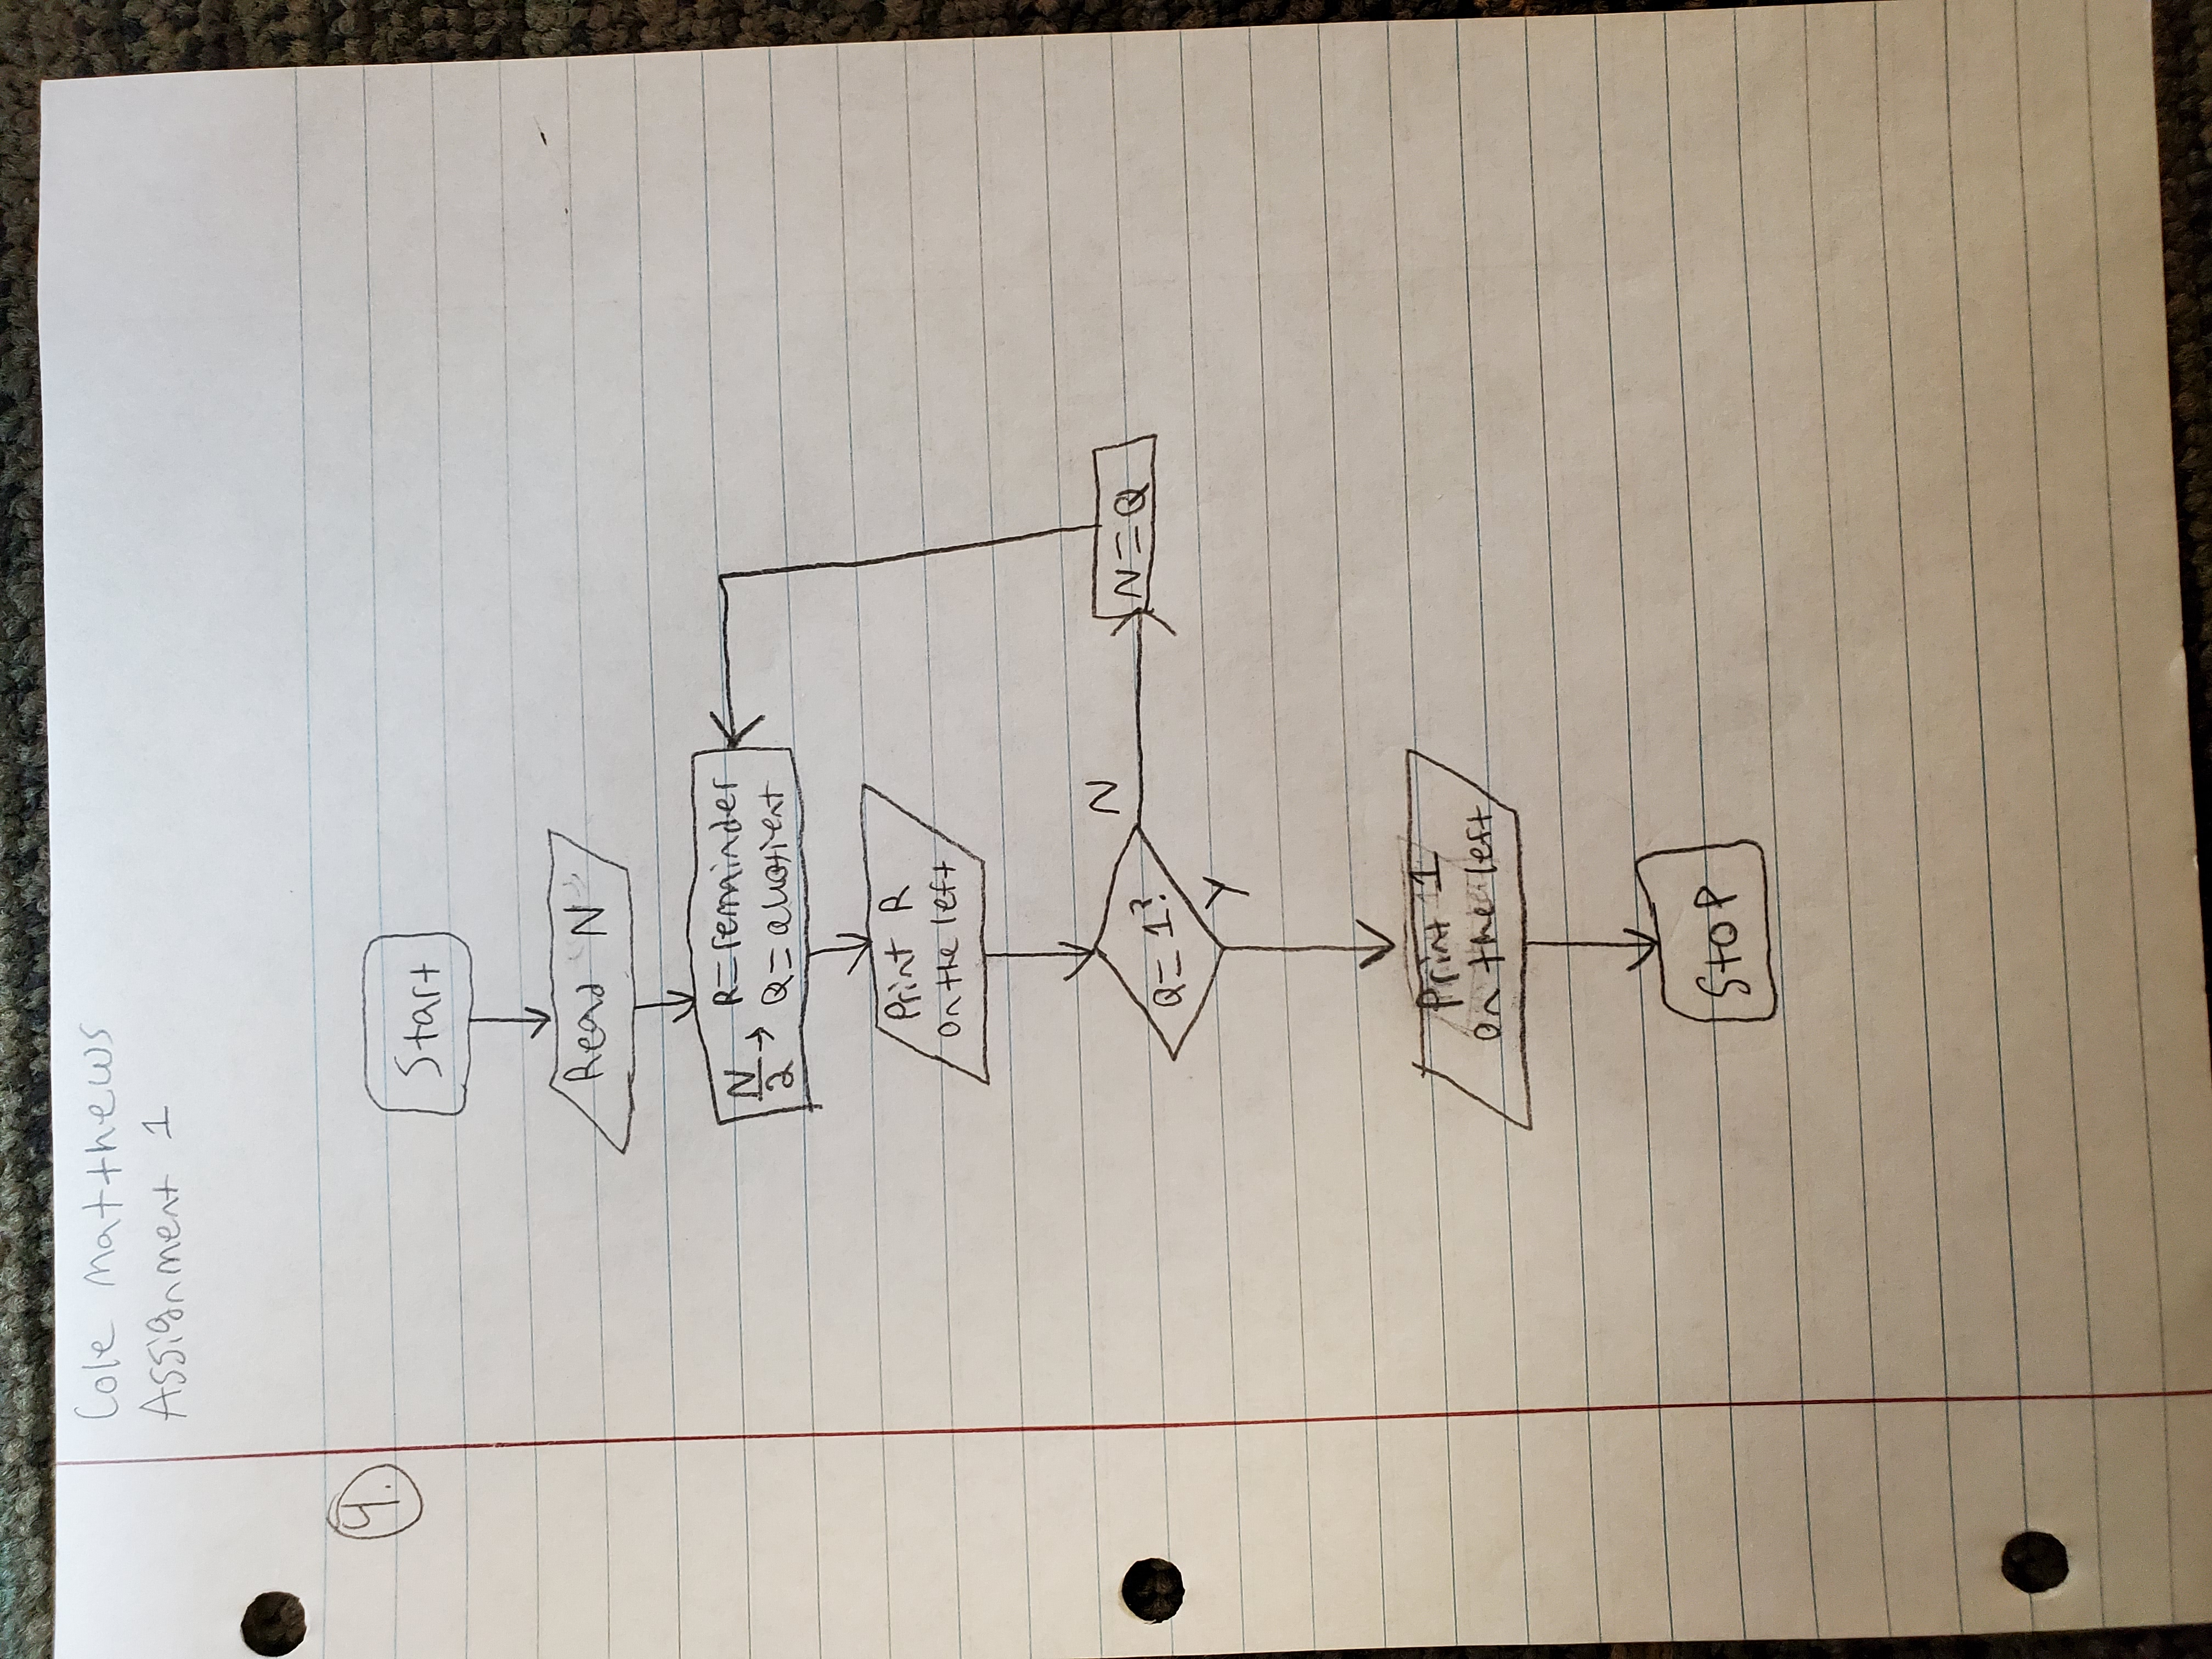 Cole Matthews
Assignment 1
4.
Start
Read "N"
N/2 → R=remainder
Q=Quotient
Print R
on the left
Q=1?
N
N=Q
Y
Print 1
on the left
Stop